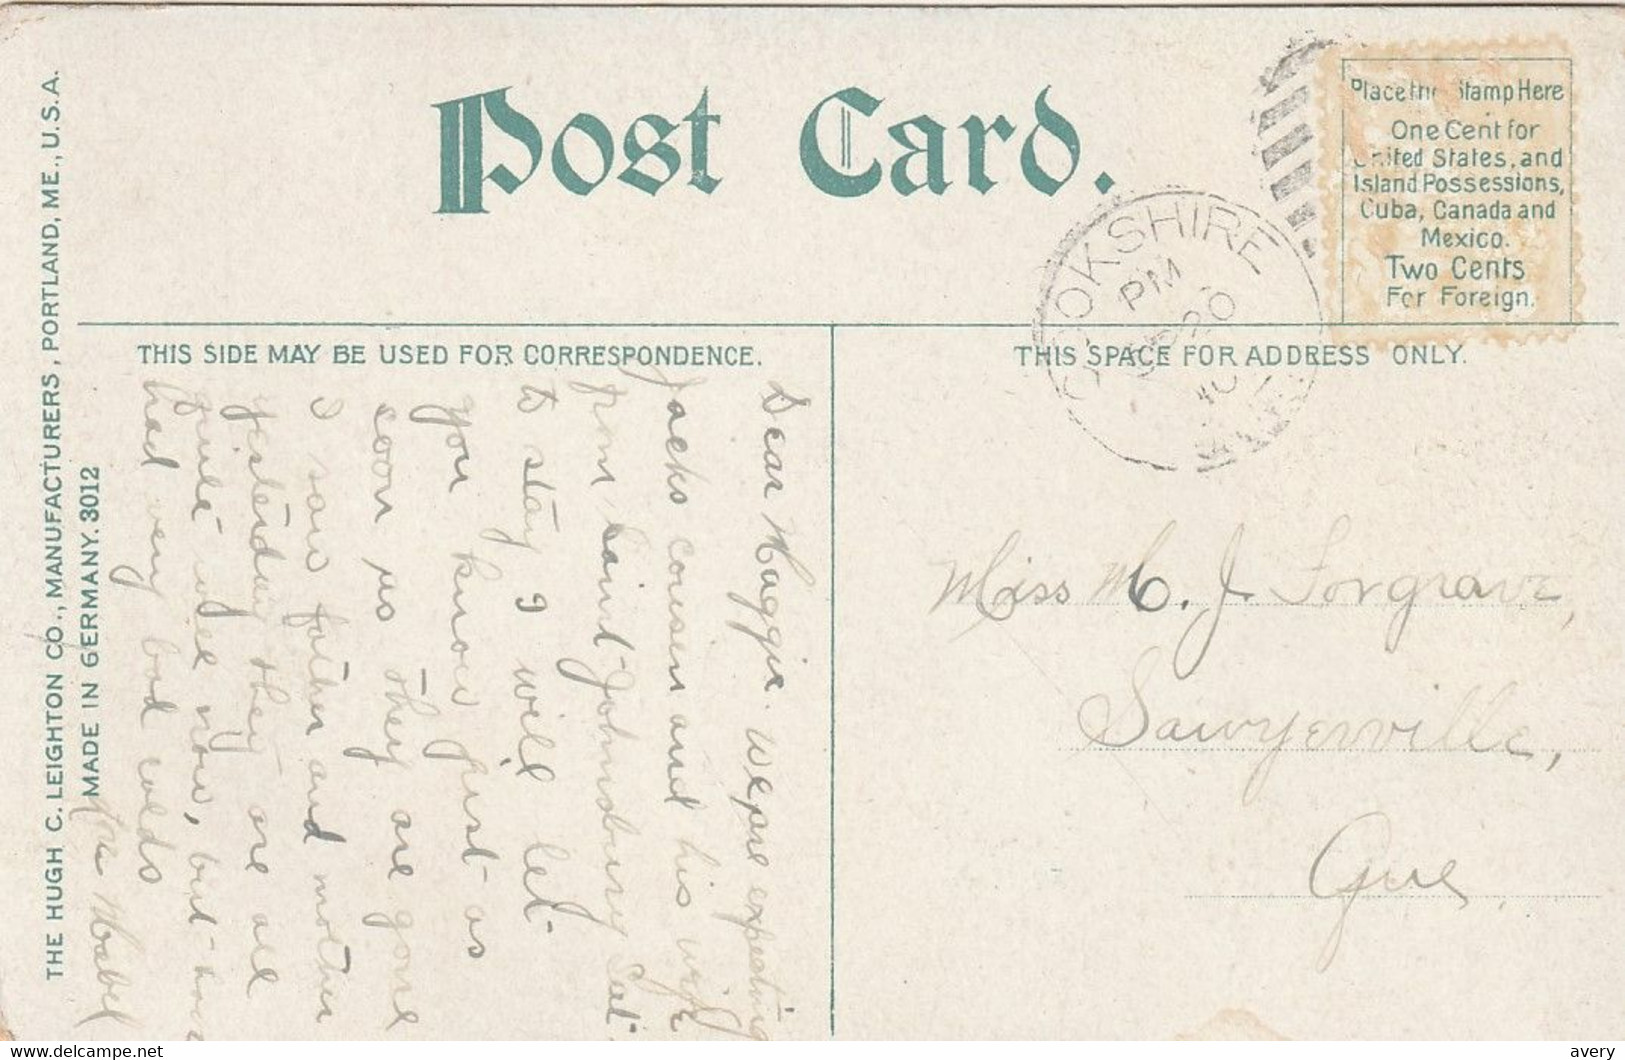 Post Card.
Place the Stamp Here
One Cent for
United States, and
Island Possessions,
Cuba, Canada and
Mexico.
Two Cents
For Foreign.
COOKSHIRE
PM
20
10
THIS SIDE MAY BE USED FOR CORRESPONDENCE.
THIS SPACE FOR ADDRESS ONLY.
THE HUGH C. LEIGHTON CO., MANUFACTURERS, PORTLAND, ME., U.S.A.
MADE IN GERMANY. 3012
Dear Maggie. We are expecting
Jacks cousen and his wife
from Saint Johnsbury Sat.
to stay I will let
you know just as
soon as they are gone
I saw father and mother
yesterday they are all
quite well now, but have
had very bad colds
Mabel
Miss M. J. Forgrave,
Sawyerville,
Que.
delcampe.net
avery